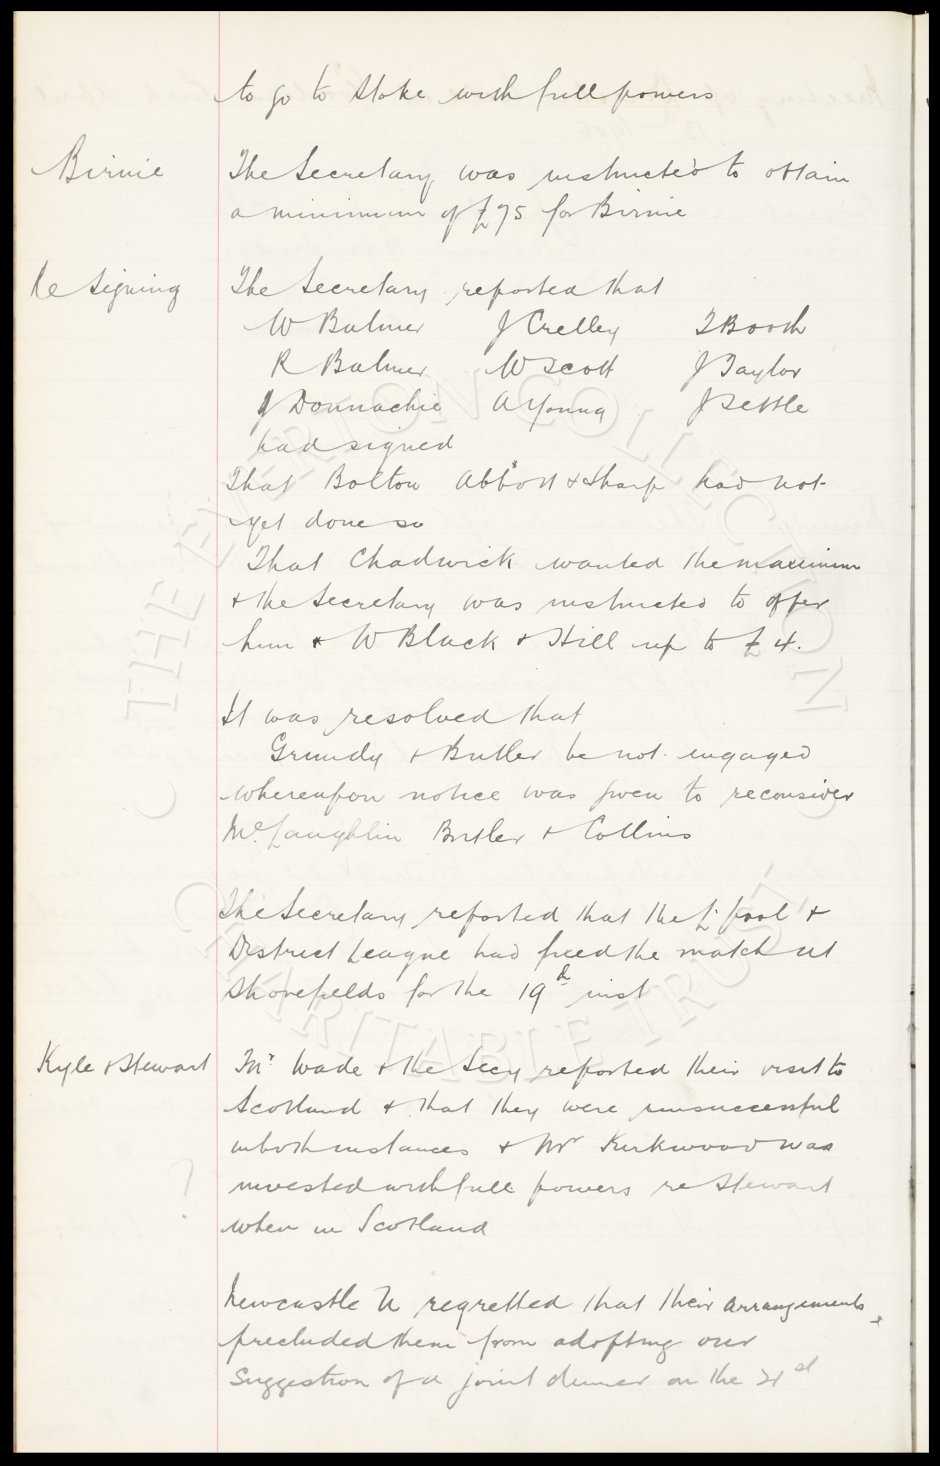 to go to Stoke with full powers
Birnie
The Secretary was instructed to obtain
a minimum of £75 for Birnie
Re Signing
The Secretary reported that
W Balmer J Crelley T Booth
R Balmer W Scott J Taylor
J Donnachie A Young J Settle
had signed
That Bolton Abbott & Sharp had not
yet done so
That Chadwick wanted the maximum
& the Secretary was instructed to offer
him & W Black & Hill up to £4.
It was resolved that
Grundy & Butler be not engaged
whereupon notice was given to reconsider
McLaughlin Butler & Collins
The Secretary reported that the L'pool &
District League had fixed the match at
Stonefields for the 19th inst
Kyle & Stewart
Mr Wade & the Secy reported their visit to
Scotland & that they were unsuccessful
in both instances & Mr Kirkwood was
invested with full powers re Stewart
?
when in Scotland
Newcastle U regretted that their arrangements
precluded them from adopting our
suggestion of a joint dinner on the 21st
© THE EVERTON COLLECTION
CHARITABLE TRUST